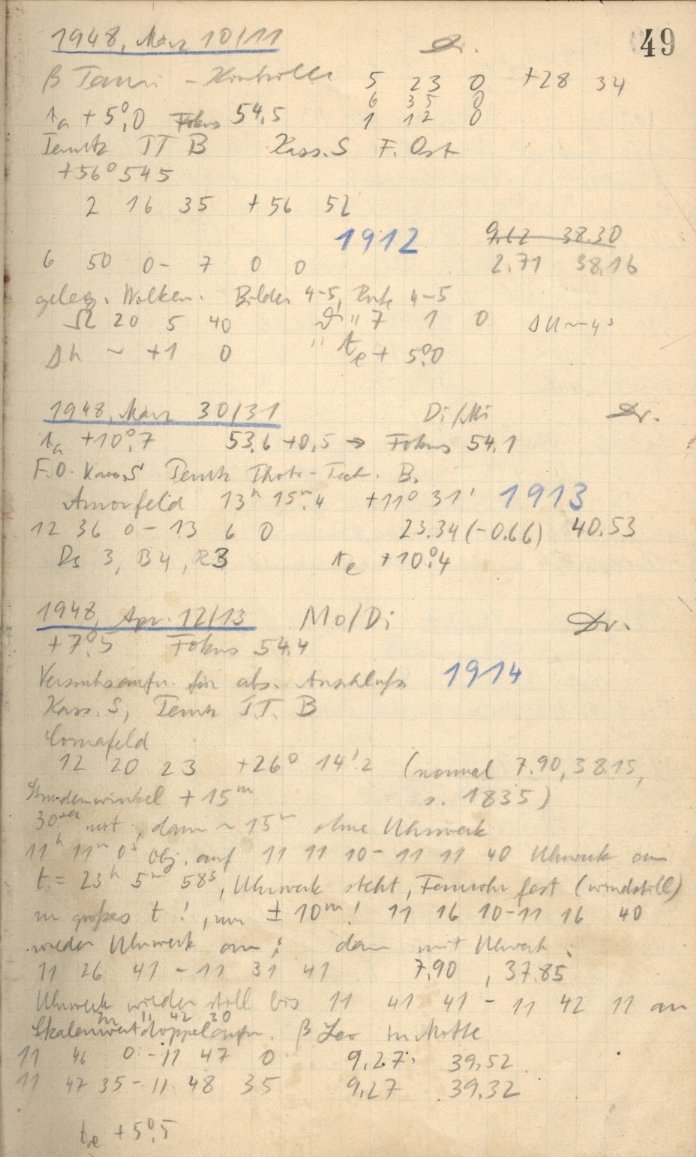 49
1948, März 10/11 Dr.
β Tauri - Kontrolle 5 23 0 +28 34
6 35 0
tₐ +5°,0 Fokus 54,5 1 12 0
TT B Kass. S F. Ost
+56° 545
2 16 35 +56 52
1912 9.62 38.30
6 50 0 - 7 0 0 2.71 38.16
geleg. Wolken. Bilder 4-5, Ruhe 4-5
20 5 40 7 1 0
Δh ~ +1 0 tₑ + 5°,0
1948, März 30/31 Di/Mi Dr.
tₐ +10°,7 53,6 +0,5 → Fokus 54,1
F.O. Kass. S B.
13ʰ 15ᵐ,4 +11° 31' 1913
12 36 0 - 13 6 0 23.34 (-0.66) 40.53
Ds 3, B 4, R 3 tₑ +10°,4
1948, Apr. 12/13 Mo/Di Dr.
+7°,5 Fokus 54,4
Versuchsaufn. für abs. Anschluß 1914
Kass. S, TT. B
Comafeld
12 20 23 +26° 14',2 (normal 7.90, 38.15,
s. 1835)
Stundenwinkel + 15ᵐ
, dann ~ 15ᵐ ohne Uhrwerk
11ʰ 11ᵐ 0ˢ Obj. auf 11 11 10 - 11 11 40 Uhrwerk an
t = 23ʰ 5ᵐ 58ˢ, Uhrwerk steht, Fernrohr fest (windstill)
zu großes t!, nur ± 10ᵐ! 11 16 10 - 11 16 40
wieder Uhrwerk an; dann mit Uhrwerk.
11 26 41 - 11 31 41 7.90, 37.85
Uhrwerk wieder still bis 11 41 41 - 11 42 11 an
11 42 30
Skalenwertdoppelaufn. β Leo in Mitte
11 46 0 - 11 47 0 9.27 39.52
11 47 35 - 11 48 35 9.27 39.32
tₑ +5°,5